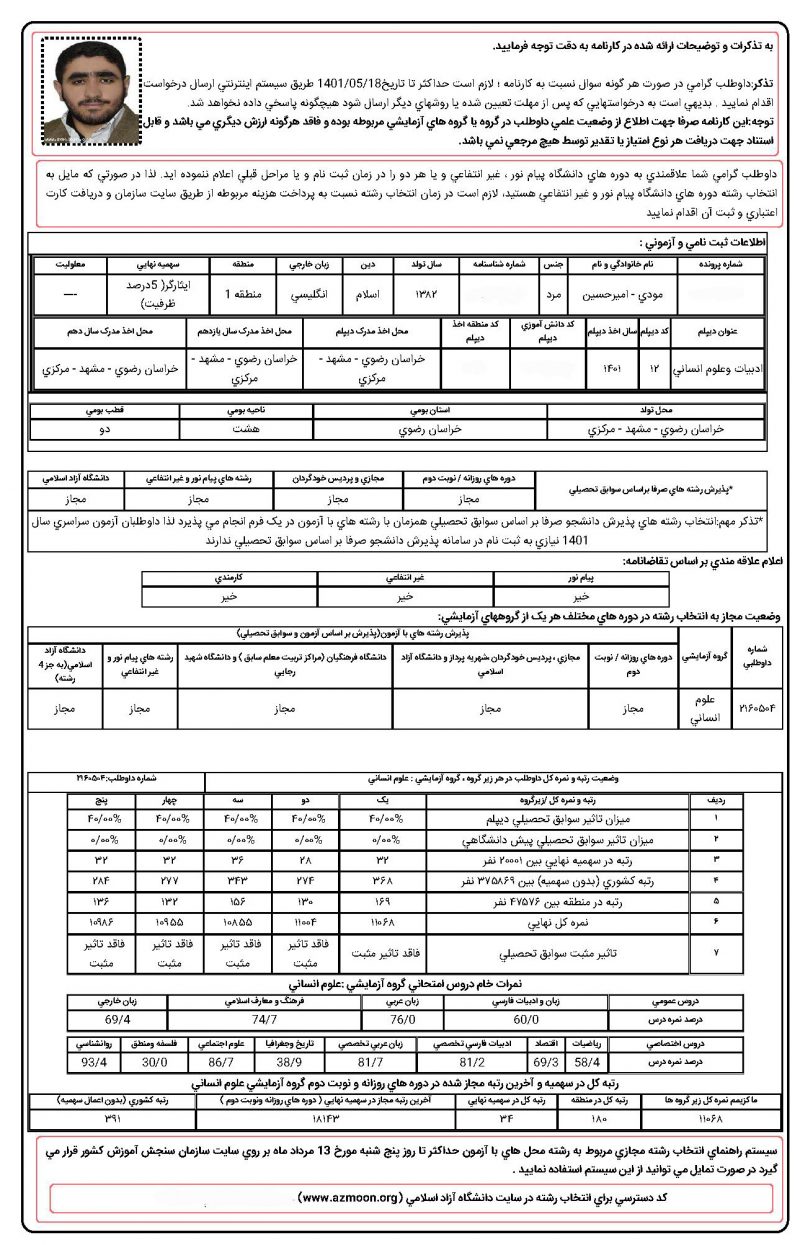 به تذکرات و توضیحات ارائه شده در کارنامه به دقت توجه فرمایید.
تذکر:داوطلب گرامي در صورت هر گونه سوال نسبت به کارنامه ؛ لازم است حداکثر تا تاریخ1401/05/18 طریق سیستم اینترنتي ارسال درخواست
اقدام نمایید . بدیهي است به درخواستهایي که پس از مهلت تعیین شده یا روشهاي دیگر ارسال شود هیچگونه پاسخي داده نخواهد شد.
توجه:این کارنامه صرفا جهت اطلاع از وضعیت علمي داوطلب در گروه یا گروه هاي آزمایشي مربوطه بوده و فاقد هرگونه ارزش دیگري مي باشد و قابل
استناد جهت دریافت هر نوع امتیاز یا تقدیر توسط هیچ مرجعي نمي باشد.
داوطلب گرامي شما علاقمندي به دوره هاي دانشگاه پیام نور ، غیر انتفاعي و یا هر دو را در زمان ثبت نام و یا مراحل قبلي اعلام ننموده اید. لذا در صورتي که مایل به
انتخاب رشته دوره هاي دانشگاه پیام نور و غیر انتفاعي هستید، لازم است در زمان انتخاب رشته نسبت به پرداخت هزینه مربوطه از طریق سایت سازمان و دریافت کارت
اعتباري و ثبت آن اقدام نمایید
اطلاعات ثبت نامي و آزموني :
شماره پرونده نام خانوادگي و نام جنس شماره شناسنامه سال تولد دین زبان خارجي منطقه سهمیه نهایي معلولیت
مودي - امیرحسین مرد ۱۳۸۲ اسلام انگلیسي منطقه 1 ایثارگر( 5درصد ظرفیت) ----
عنوان دیپلم کد دیپلم سال اخذ دیپلم کد دانش آموزي دیپلم کد منطقه اخذ دیپلم محل اخذ مدرک دیپلم محل اخذ مدرک سال یازدهم محل اخذ مدرک سال دهم
ادبیات وعلوم انساني ۱۲ ۱۴۰۱ خراسان رضوي - مشهد - مرکزي خراسان رضوي - مشهد - مرکزي خراسان رضوي - مشهد - مرکزي
محل تولد استان بومي ناحیه بومي قطب بومي
خراسان رضوي - مشهد - مرکزي خراسان رضوي هشت دو
*پذیرش رشته هاي صرفا براساس سوابق تحصیلي دوره هاي روزانه / نوبت دوم مجازي و پردیس خودگردان رشته هاي پیام نور و غیر انتفاعي دانشگاه آزاد اسلامي
مجاز مجاز مجاز مجاز
*تذکر مهم:انتخاب رشته هاي پذیرش دانشجو صرفا بر اساس سوابق تحصیلي همزمان با رشته هاي با آزمون در یک فرم انجام مي پذیرد لذا داوطلبان آزمون سراسري سال
1401 نیازي به ثبت نام در سامانه پذیرش دانشجو صرفا بر اساس سوابق تحصیلي ندارند
اعلام علاقه مندي بر اساس تقاضانامه:
پیام نور غیر انتفاعي کارمندي
خیر خیر خیر
وضعیت مجاز به انتخاب رشته در دوره هاي مختلف هر یک از گروههاي آزمایشي:
پذیرش رشته هاي با آزمون(پذیرش بر اساس آزمون و سوابق تحصیلي)
شماره داوطلبي گروه آزمایشي دوره هاي روزانه / نوبت دوم مجازي ، پردیس خودگردان ،شهریه پرداز و دانشگاه آزاد اسلامي دانشگاه فرهنگیان (مراکز تربیت معلم سابق ) و دانشگاه شهید رجایي رشته هاي پیام نور و غیر انتفاعي دانشگاه آزاد اسلامي(به جز 4 رشته)
۲۱۶۰۵۰۴ علوم انساني مجاز مجاز مجاز مجاز مجاز
وضعیت رتبه و نمره کل داوطلب در هر زیر گروه ، گروه آزمایشي : علوم انساني شماره داوطلب:۲۱۶۰۵۰۴
ردیف رتبه و نمره کل /زیرگروه یک دو سه چهار پنج
۱ میزان تاثیر سوابق تحصیلي دیپلم ۴۰/۰۰% ۴۰/۰۰% ۴۰/۰۰% ۴۰/۰۰% ۴۰/۰۰%
۲ میزان تاثیر سوابق تحصیلي پیش دانشگاهي ۰/۰۰% ۰/۰۰% ۰/۰۰% ۰/۰۰% ۰/۰۰%
۳ رتبه در سهمیه نهایي بین ۲۰۰۰۱ نفر ۳۲ ۲۸ ۳۶ ۳۲ ۳۲
۴ رتبه کشوري (بدون سهمیه) بین ۳۷۵۸۶۹ نفر ۳۶۸ ۲۷۴ ۳۴۳ ۲۷۷ ۲۸۴
۵ رتبه در منطقه بین ۴۷۵۷۶ نفر ۱۶۹ ۱۳۰ ۱۵۶ ۱۳۲ ۱۳۶
۶ نمره کل نهایي ۱۱۰۶۸ ۱۱۰۰۴ ۱۰۸۵۵ ۱۰۹۵۵ ۱۰۹۸۶
۷ تاثیر مثبت سوابق تحصیلي فاقد تاثیر مثبت فاقد تاثیر مثبت فاقد تاثیر مثبت فاقد تاثیر مثبت فاقد تاثیر مثبت
نمرات خام دروس امتحاني گروه آزمایشي :علوم انساني
دروس عمومي زبان و ادبیات فارسي زبان عربي فرهنگ و معارف اسلامي زبان خارجي
درصد نمره درس 60/0 76/0 74/7 69/4
دروس اختصاصي ریاضیات اقتصاد ادبیات فارسي تخصصي زبان عربي تخصصي تاریخ وجغرافیا علوم اجتماعي فلسفه ومنطق روانشناسي
درصد نمره درس 58/4 69/3 81/2 81/7 38/9 86/7 30/0 93/4
رتبه کل در سهمیه و آخرین رتبه مجاز شده در دوره هاي روزانه و نوبت دوم گروه آزمایشي علوم انساني
ماکزیمم نمره کل زیر گروه ها رتبه کل در منطقه رتبه کل در سهمیه نهایي آخرین رتبه مجاز در سهمیه نهایي ( دوره هاي روزانه ونوبت دوم ) رتبه کشوري (بدون اعمال سهمیه)
۱۱۰۶۸ ۱۸۰ ۳۴ ۱۸۱۴۳ ۳۹۱
سیستم راهنماي انتخاب رشته مجازي مربوط به رشته محل هاي با آزمون حداکثر تا روز پنج شنبه مورخ 13 مرداد ماه بر روي سایت سازمان سنجش آموزش کشور قرار مي
گیرد در صورت تمایل مي توانید از این سیستم استفاده نمایید .
کد دسترسي براي انتخاب رشته در سایت دانشگاه آزاد اسلامي (www.azmoon.org)